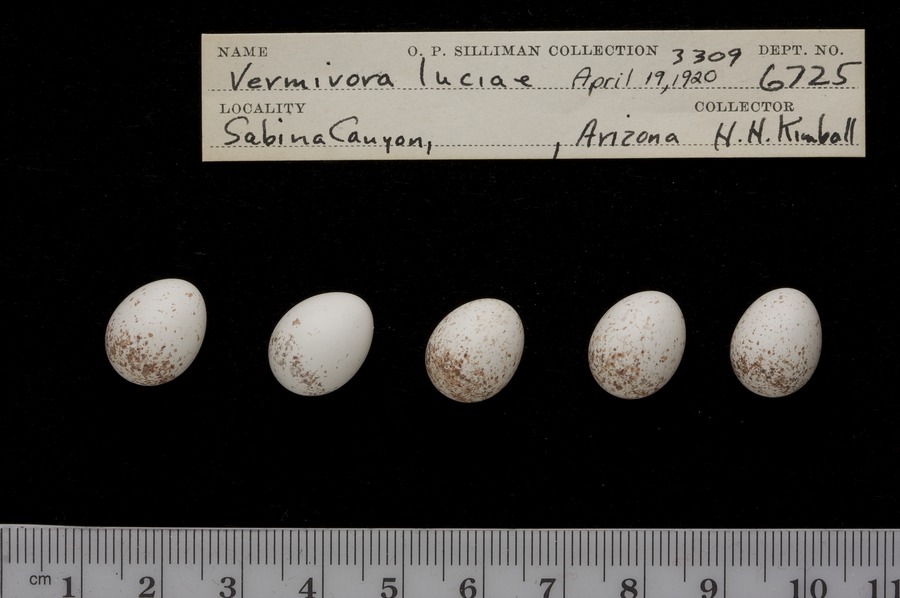 NAME O. P. SILLIMAN COLLECTION 3309 DEPT. NO.
Vermivora luciae April 19, 1920 6725
LOCALITY COLLECTOR
Sabina Canyon, , Arizona H. H. Kimball
cm 1 2 3 4 5 6 7 8 9 10 11